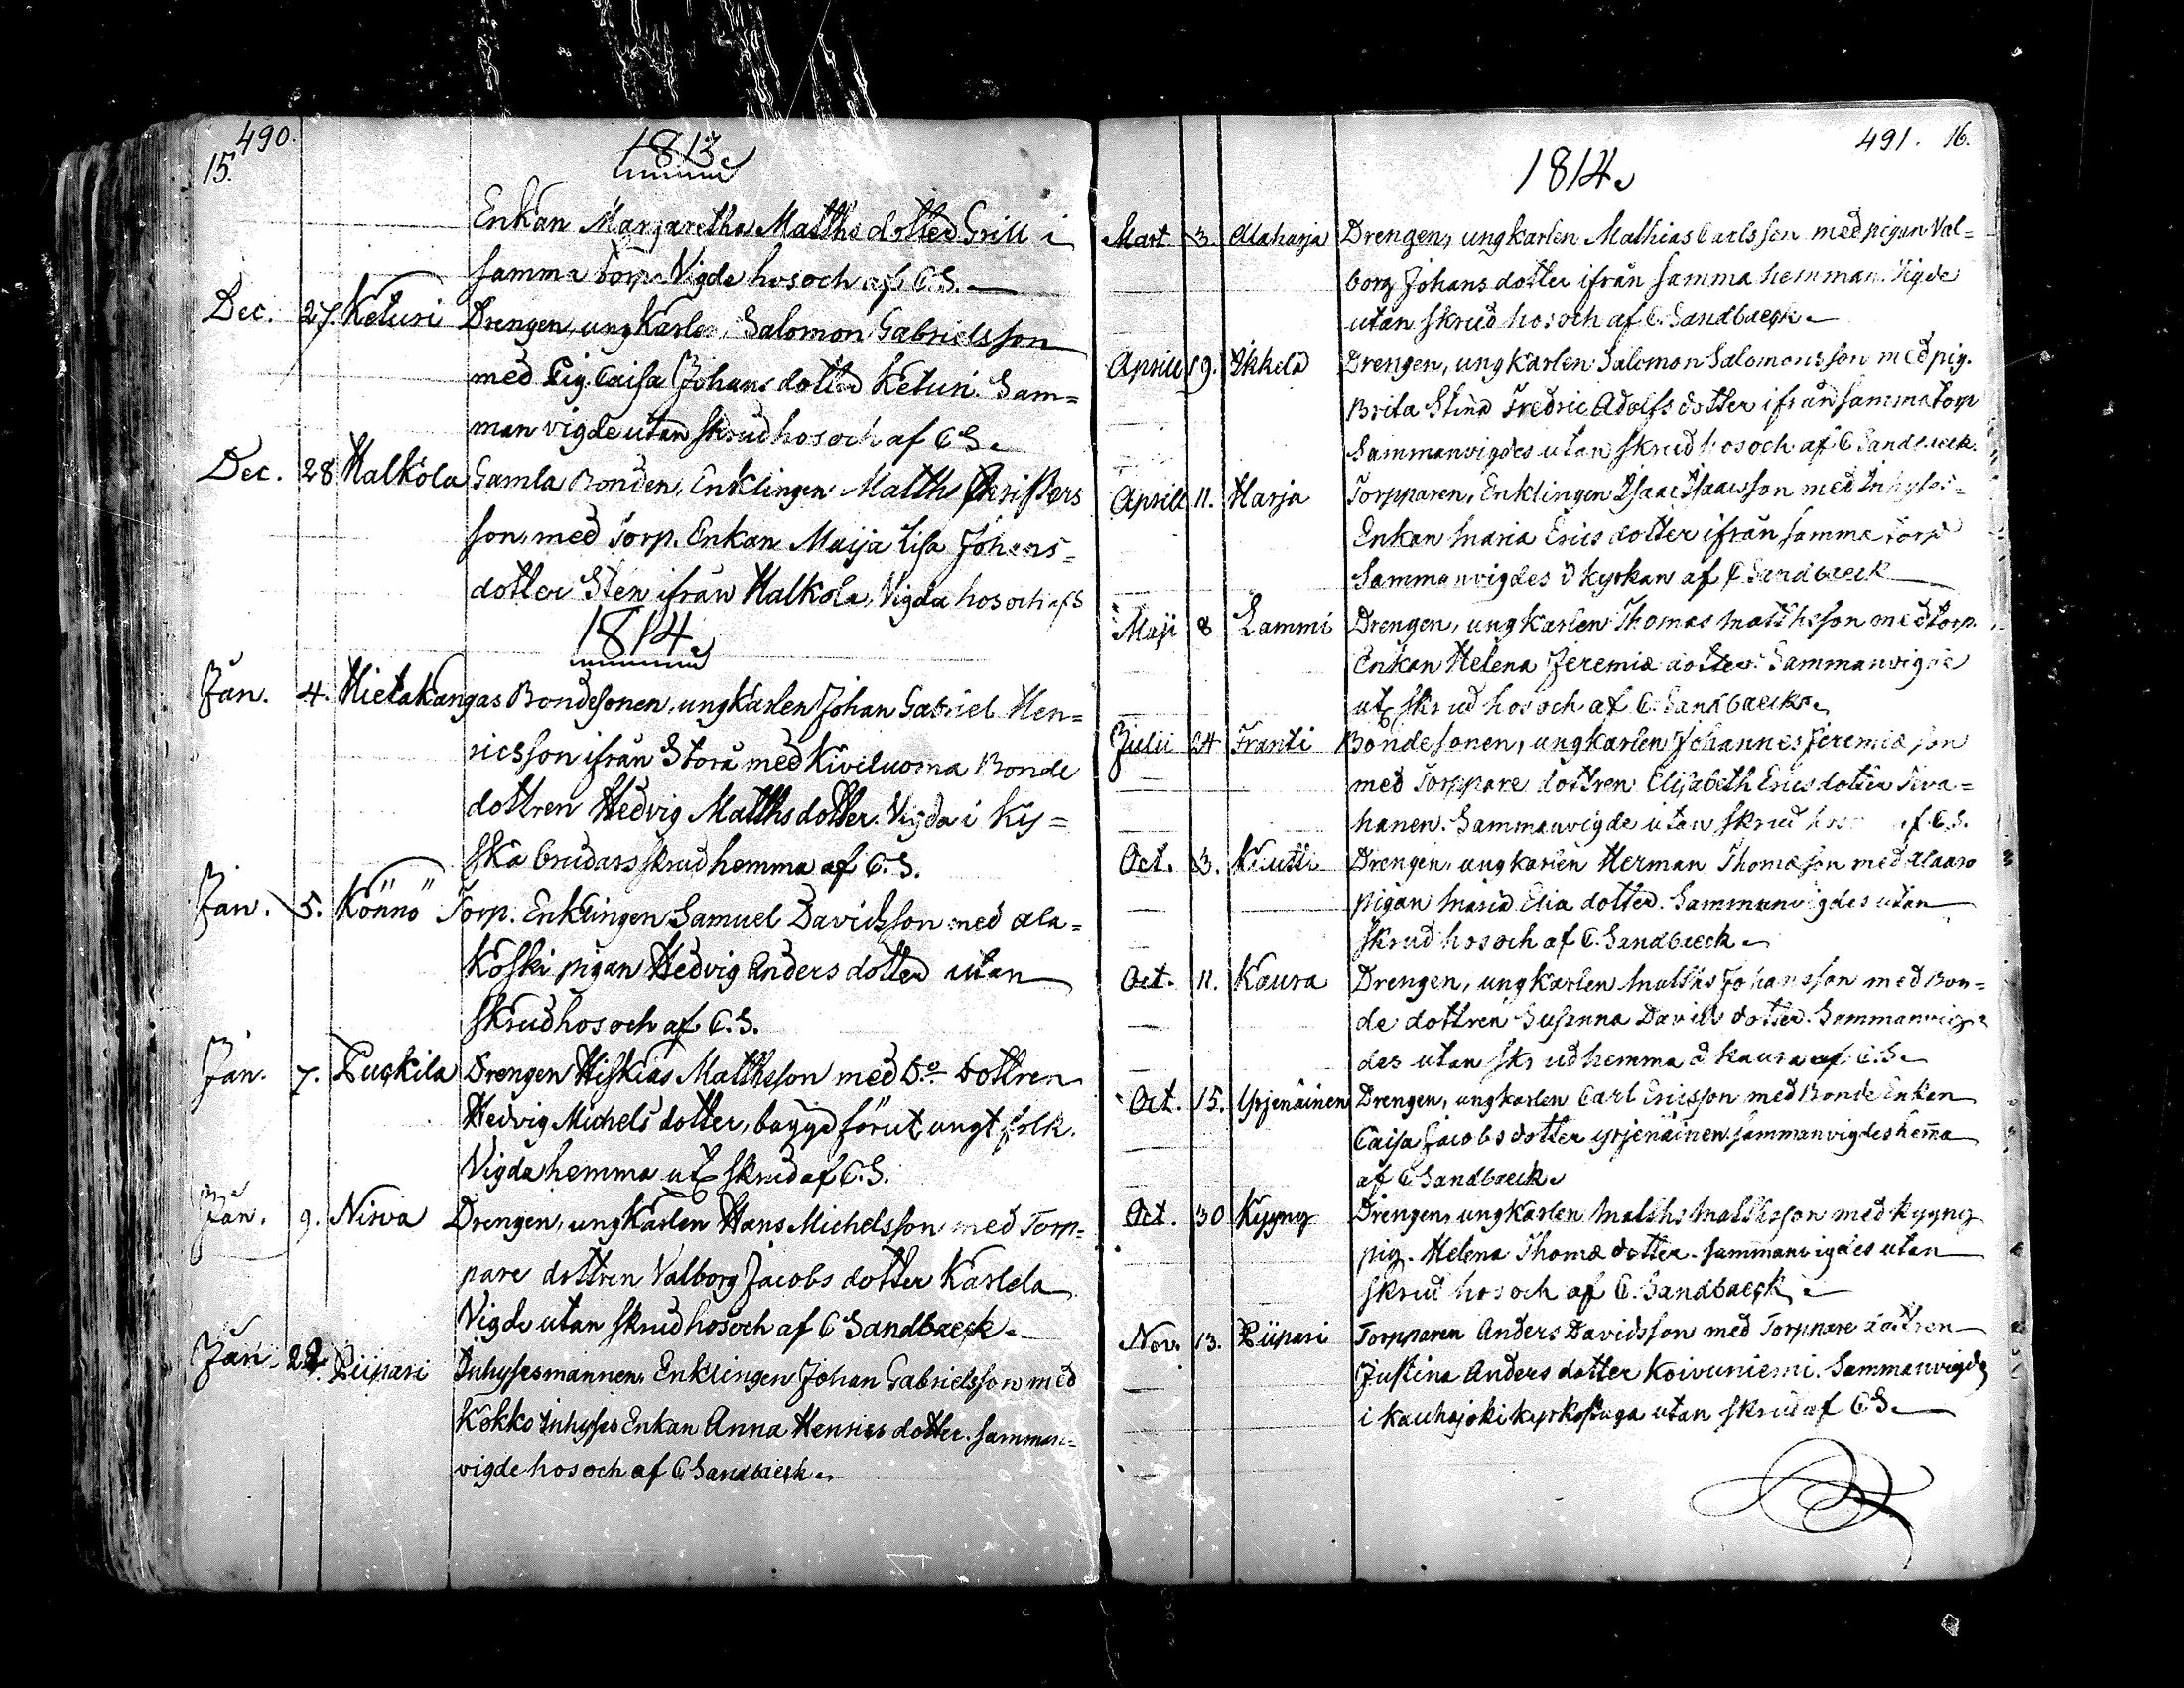 490.
15.
1813.
Enkan Margaretha Matths dotter Grill i
samma Torp. Vigde hos och af C.S.
Dec. 27. Keturi Drengen, ungkarlen Salomon Gabrielsson
med Pig. Caisa Johans dotter Keturi. Sam=
man vigde utan skrud hos och af C.S.
Dec. 28 Halkola Gamla Bonden, Enklingen Matths Christers
son, med Torp. Enkan Maija Lisa Johans=
dotter Sten ifrån Halkola, Vigda hos och af S
1814.
Jan. 4. Hietakangas Bondesonen, ungkarlen Johan Gabriel Hen=
ricsson ifrån Storå med Kiviluoma Bonde
dottren Hedvig Matths dotter. Vigda i Ky=
ska brudars skrud hemma af C.S.
Jan. 5. Könnö Torp. Enklingen Samuel Davidsson med Ala=
koski pigan Hedvig Anders dotter utan
skrud hos och af C.S.
Jan. 7. Luckila Drengen Hiskias Matthsson med Do. Dottren
Hedvig Michels dotter, bägge förut ungt folk.
Vigda hemma ut skrud af C.S.
Jan. 9. Nirva Drengen, ungkarlen Hans Michelsson med Torp=
pare dottren Valborg Jacobs dotter Karlela
Vigde utan skrud hos och af C Sandbaeck.
Jan. 22. Piipari Inhysesmannen, Enklingen Johan Gabrielsson med
Kokko Inhyses Enkan Anna Henrics dotter. samman=
vigde hos och af C Sandbaeck.
491. 16.
1814.
Mart 3. Alaharja Drengen, ungkarlen Mathias Carlsson med pigan Val=
borg Johans dotter ifrån samma hemman. Vigde
utan skrud hos och af C. Sandbaeck.
Aprill 9. Ikkelä Drengen, ungkarlen Salomon Salomonsson med pig.
Brita Stina Fredric Adolfs dotter ifrån samma torp
Sammanvigdes utan skrud hos och af C Sandbaeck.
Aprill 11. Harja Torpparen, Enklingen Isaac Isaacsson med Inhyses=
Enkan Maria Erics dotter ifrån samma torp
Sammanvigdes i kyrkan af C Sandbaeck
Maji 8 Lammi Drengen, ungkarlen Thomas Matthsson med torp.
Enkan Helena Jeremiæ dotter. Sammanvigde
ut skrud hos och af C. Sandbaeck.
Julii 24 Franti Bondesonen, ungkarlen Johannes Jeremiæ son
med Torppare dottren Elisabeth Erics dotter Teva=
hanen. Sammanvigde utan skrud hos af C.S.
Oct. 3. Knutti Drengen, ungkarlen Herman Thomæson med Alaaro
pigan Maria Elia dotter. Sammanvigdes utan
skrud hos och af C. Sandbaeck.
Oct. 11. Kaura Drengen, ungkarlen Matths Johansson med Bon=
de dottren Susanna Davids dotter. Sammanvig=
des utan skrud hemma å Kaura af C.S.
Oct. 15. Yrjenäinen Drengen, ungkarlen Carl Ericsson med Bonde Enkan
Caisa Jacobs dotter Yrjenäinen sammanvigdes hema
af C Sandbaeck.
Oct. 30 Kyyny Drengen, ungkarlen Matths Matthsson med Kyyny
pig. Helena Thomæ dotter. sammanvigdes utan
skrud hos och af C. Sandbaeck.
Nov. 13. Piipari Torpparen Anders Davidsson med Torppare dottren
Justina Anders dotter Koivuniemi. Sammanvigde
i Kauhajoki kyrkostuga utan skrud af C S.